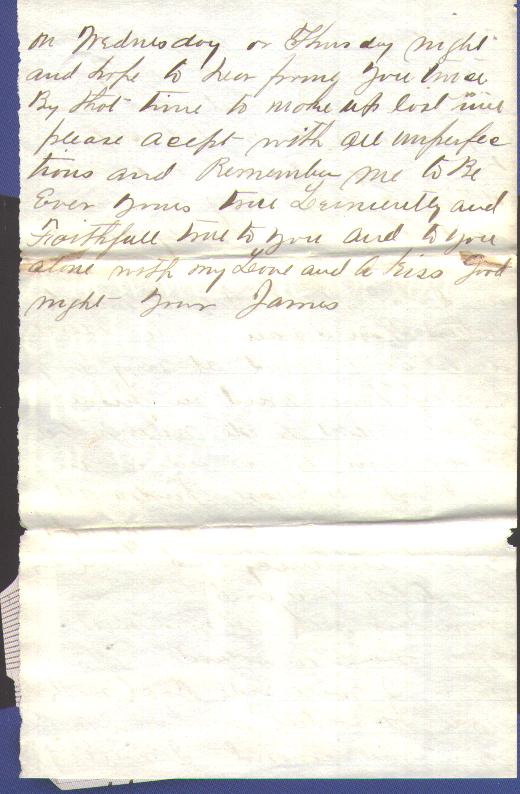 on Wednesday or Thursday night
and hope to hear from you twice
By that time to make up lost time
please acept with all imperfec
tions and Remember me to Be
Ever yours true Sincerely and
Faithfull true to you and to you
alone with my Love and a Kiss good
night your James